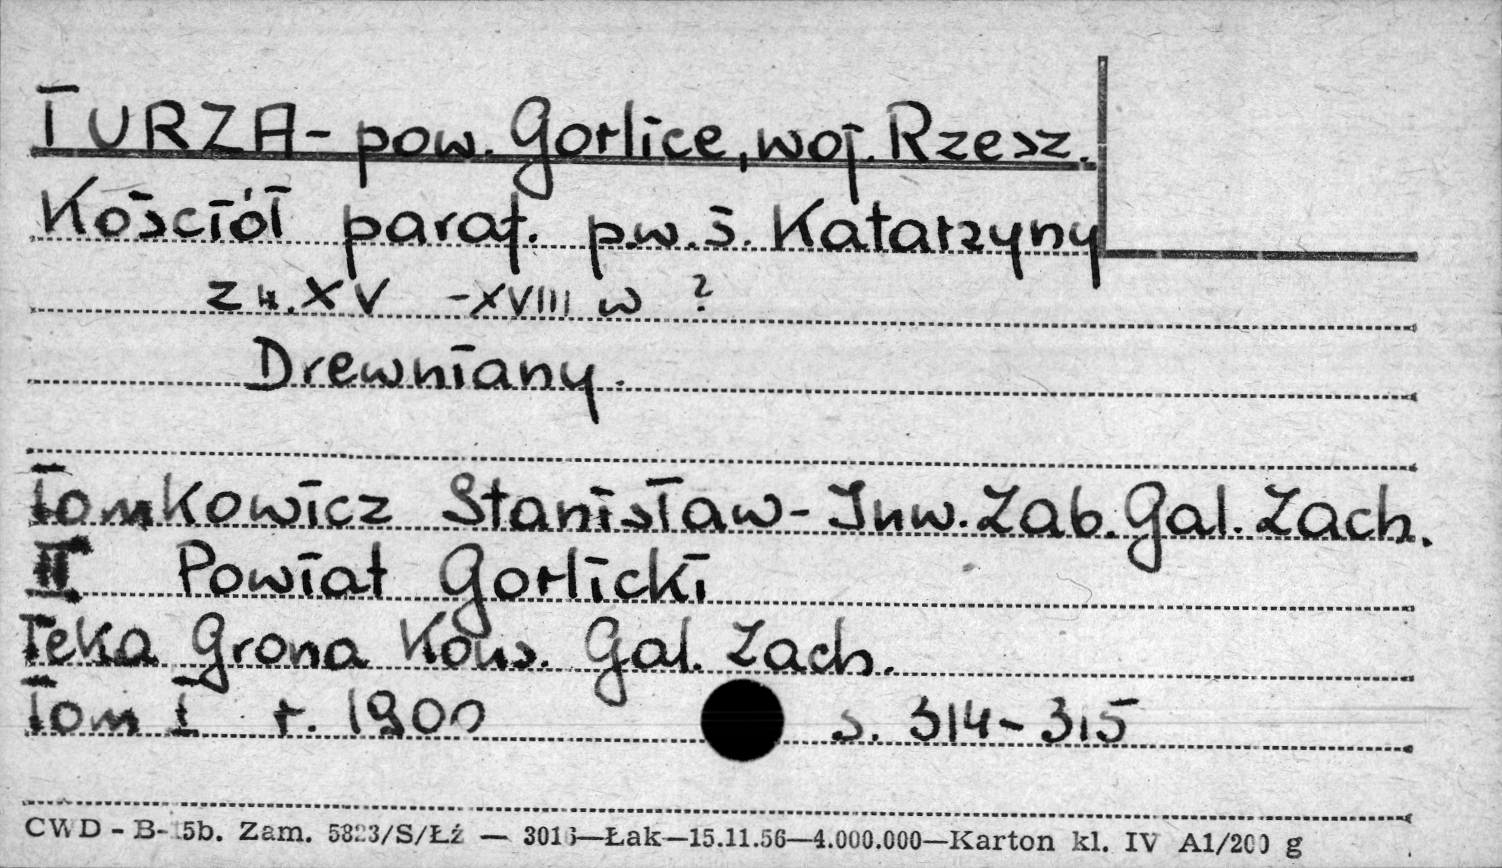 TURZA - pow. Gorlice, woj. Rzesz.
Kościół paraf. p.w. ś. Katarzyny
z k. XV - XVIII w ?
Drewniany.
Tomkowicz Stanisław - Inw. Zab. Gal. Zach.
II Powiat Gorlicki
Teka Grona Kons. Gal. Zach.
Tom I r. 1900 s. 314-315
CWD - B-15b. Zam. 5823/S/Łź — 3016—Łak—15.11.56—4.000.000—Karton kl. IV A1/200 g